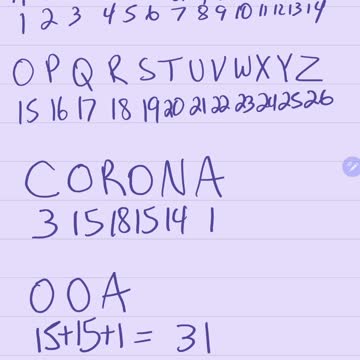 1 2 3 4 5 6 7 8 9 10 11 12 13 14
O P Q R S T U V W X Y Z
15 16 17 18 19 20 21 22 23 24 25 26
CORONA
3 15 18 15 14 1
O O A
15+15+1 = 31